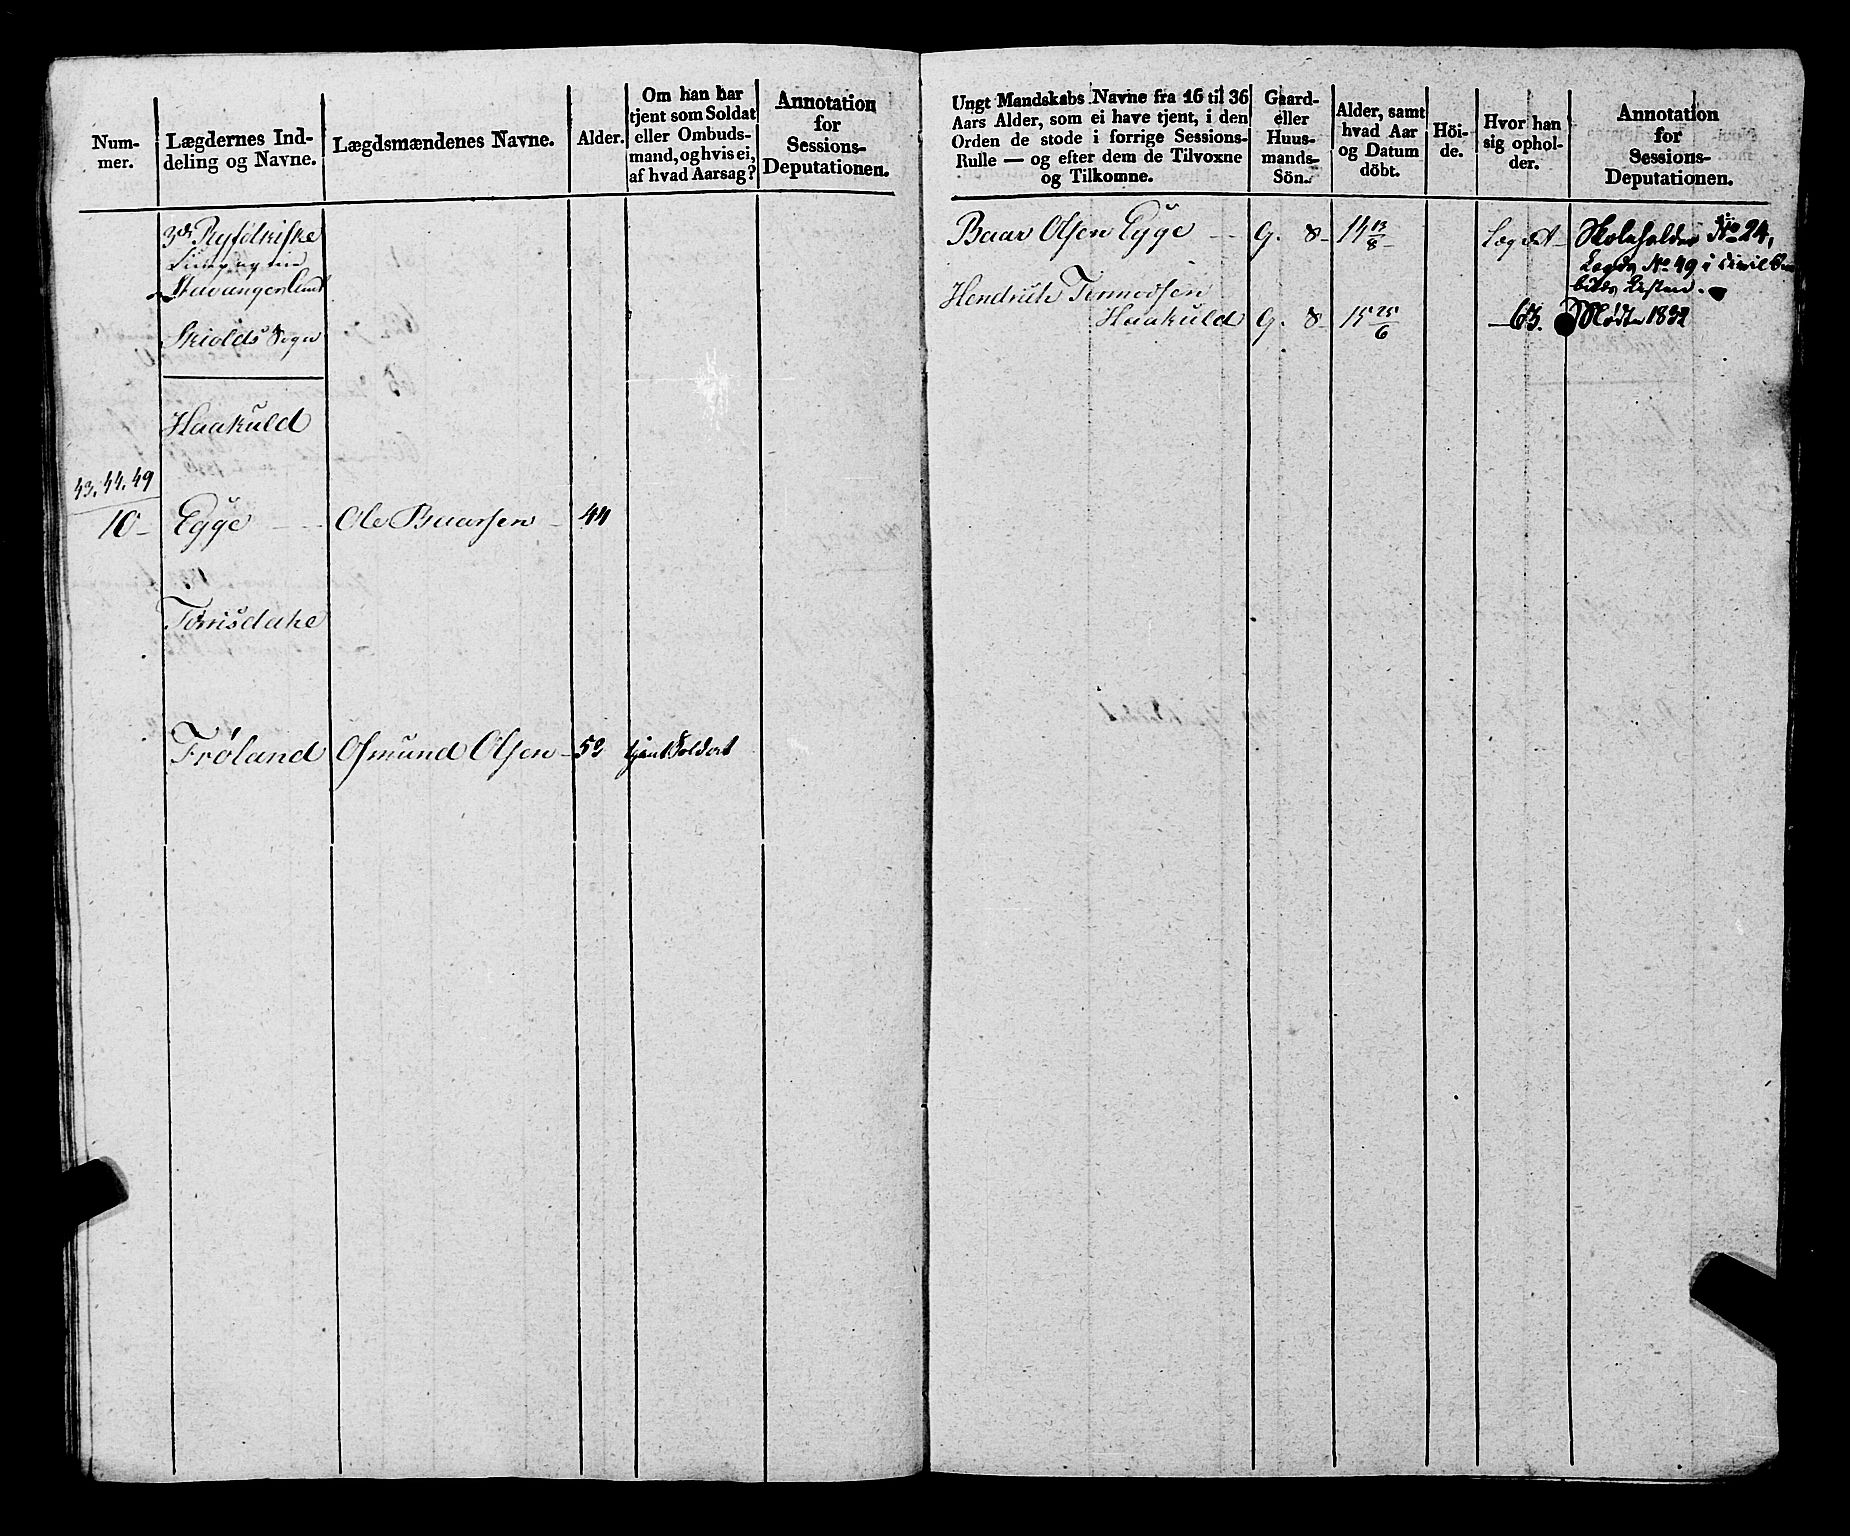 Num-
mer.
Lægdernes Ind-
deling og Navne.
Lægdsmændenes Navne.
Alder.
Om han har
tjent som Soldat
eller Ombuds-
mand, og hvis ei,
af hvad Aarsag?
Annotation
for
Sessions-
Deputationen.
3de Ryfølkiske
Stavanger Amt
Skiolds Sogn
Haakuld
43. 44. 49
10 Egge Ole Baarsen 44
Tornsdahe
Frøland Osmund Olsen 52 tjent Soldat
Ungt Mandskabs Navne fra 16 til 36
Aars Alder, som ei have tjent, i den
Orden de stode i forrige Sessions-
Rulle — og efter dem de Tilvoxne
og Tilkomne.
Gaard-
eller
Huus-
mands-
Sön.
Alder, samt
hvad Aar
og Datum
döbt.
Höi-
de.
Hvor han
sig ophol-
der.
Annotation
for
Sessions-
Deputationen.
Baar Olsen Egge G. 8 14 13/8 Lægdet Skoleholder No 24,
Lægds No 49 i Civil
Hendrich Tormodsen
Haakuld G. 8 15 25/6 63. Mødte 1832